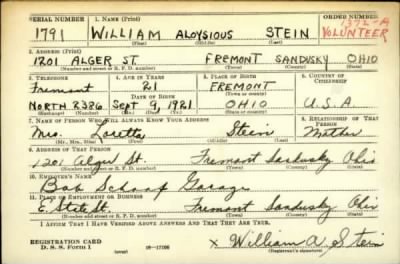 SERIAL NUMBER 1. NAME (Print) ORDER NUMBER
1791 WILLIAM ALOYSIOUS STEIN 1372-A VOLUNTEER
(First) (Middle) (Last)
2. ADDRESS (Print)
1201 ALGER ST. FREMONT SANDUSKY OHIO
(Number and street or R. F. D. number) (Town) (County) (State)
3. TELEPHONE 4. AGE IN YEARS 5. PLACE OF BIRTH 6. COUNTRY OF CITIZENSHIP
Fremont 21 FREMONT
DATE OF BIRTH
NORTH 2386 Sept 9, 1921 OHIO U.S.A
(Exchange) (Number) (Mo.) (Day) (Yr.) (State or country)
7. NAME OF PERSON WHO WILL ALWAYS KNOW YOUR ADDRESS 8. RELATIONSHIP OF THAT PERSON
Mrs. Loretta Stein Mother
(Mr., Mrs., Miss) (First) (Middle) (Last)
9. ADDRESS OF THAT PERSON
1201 Alger St. Fremont Sandusky Ohio
(Number and street or R. F. D. number) (Town) (County) (State)
10. EMPLOYER'S NAME
Bob Schaaf Garage
11. PLACE OF EMPLOYMENT OR BUSINESS
E. State St. Fremont Sandusky Ohio
(Number and street or R. F. D. number) (Town) (County) (State)
I AFFIRM THAT I HAVE VERIFIED ABOVE ANSWERS AND THAT THEY ARE TRUE.
REGISTRATION CARD
D. S. S. Form 1 (over) 16-17105 x William A. Stein
(Registrant's signature)